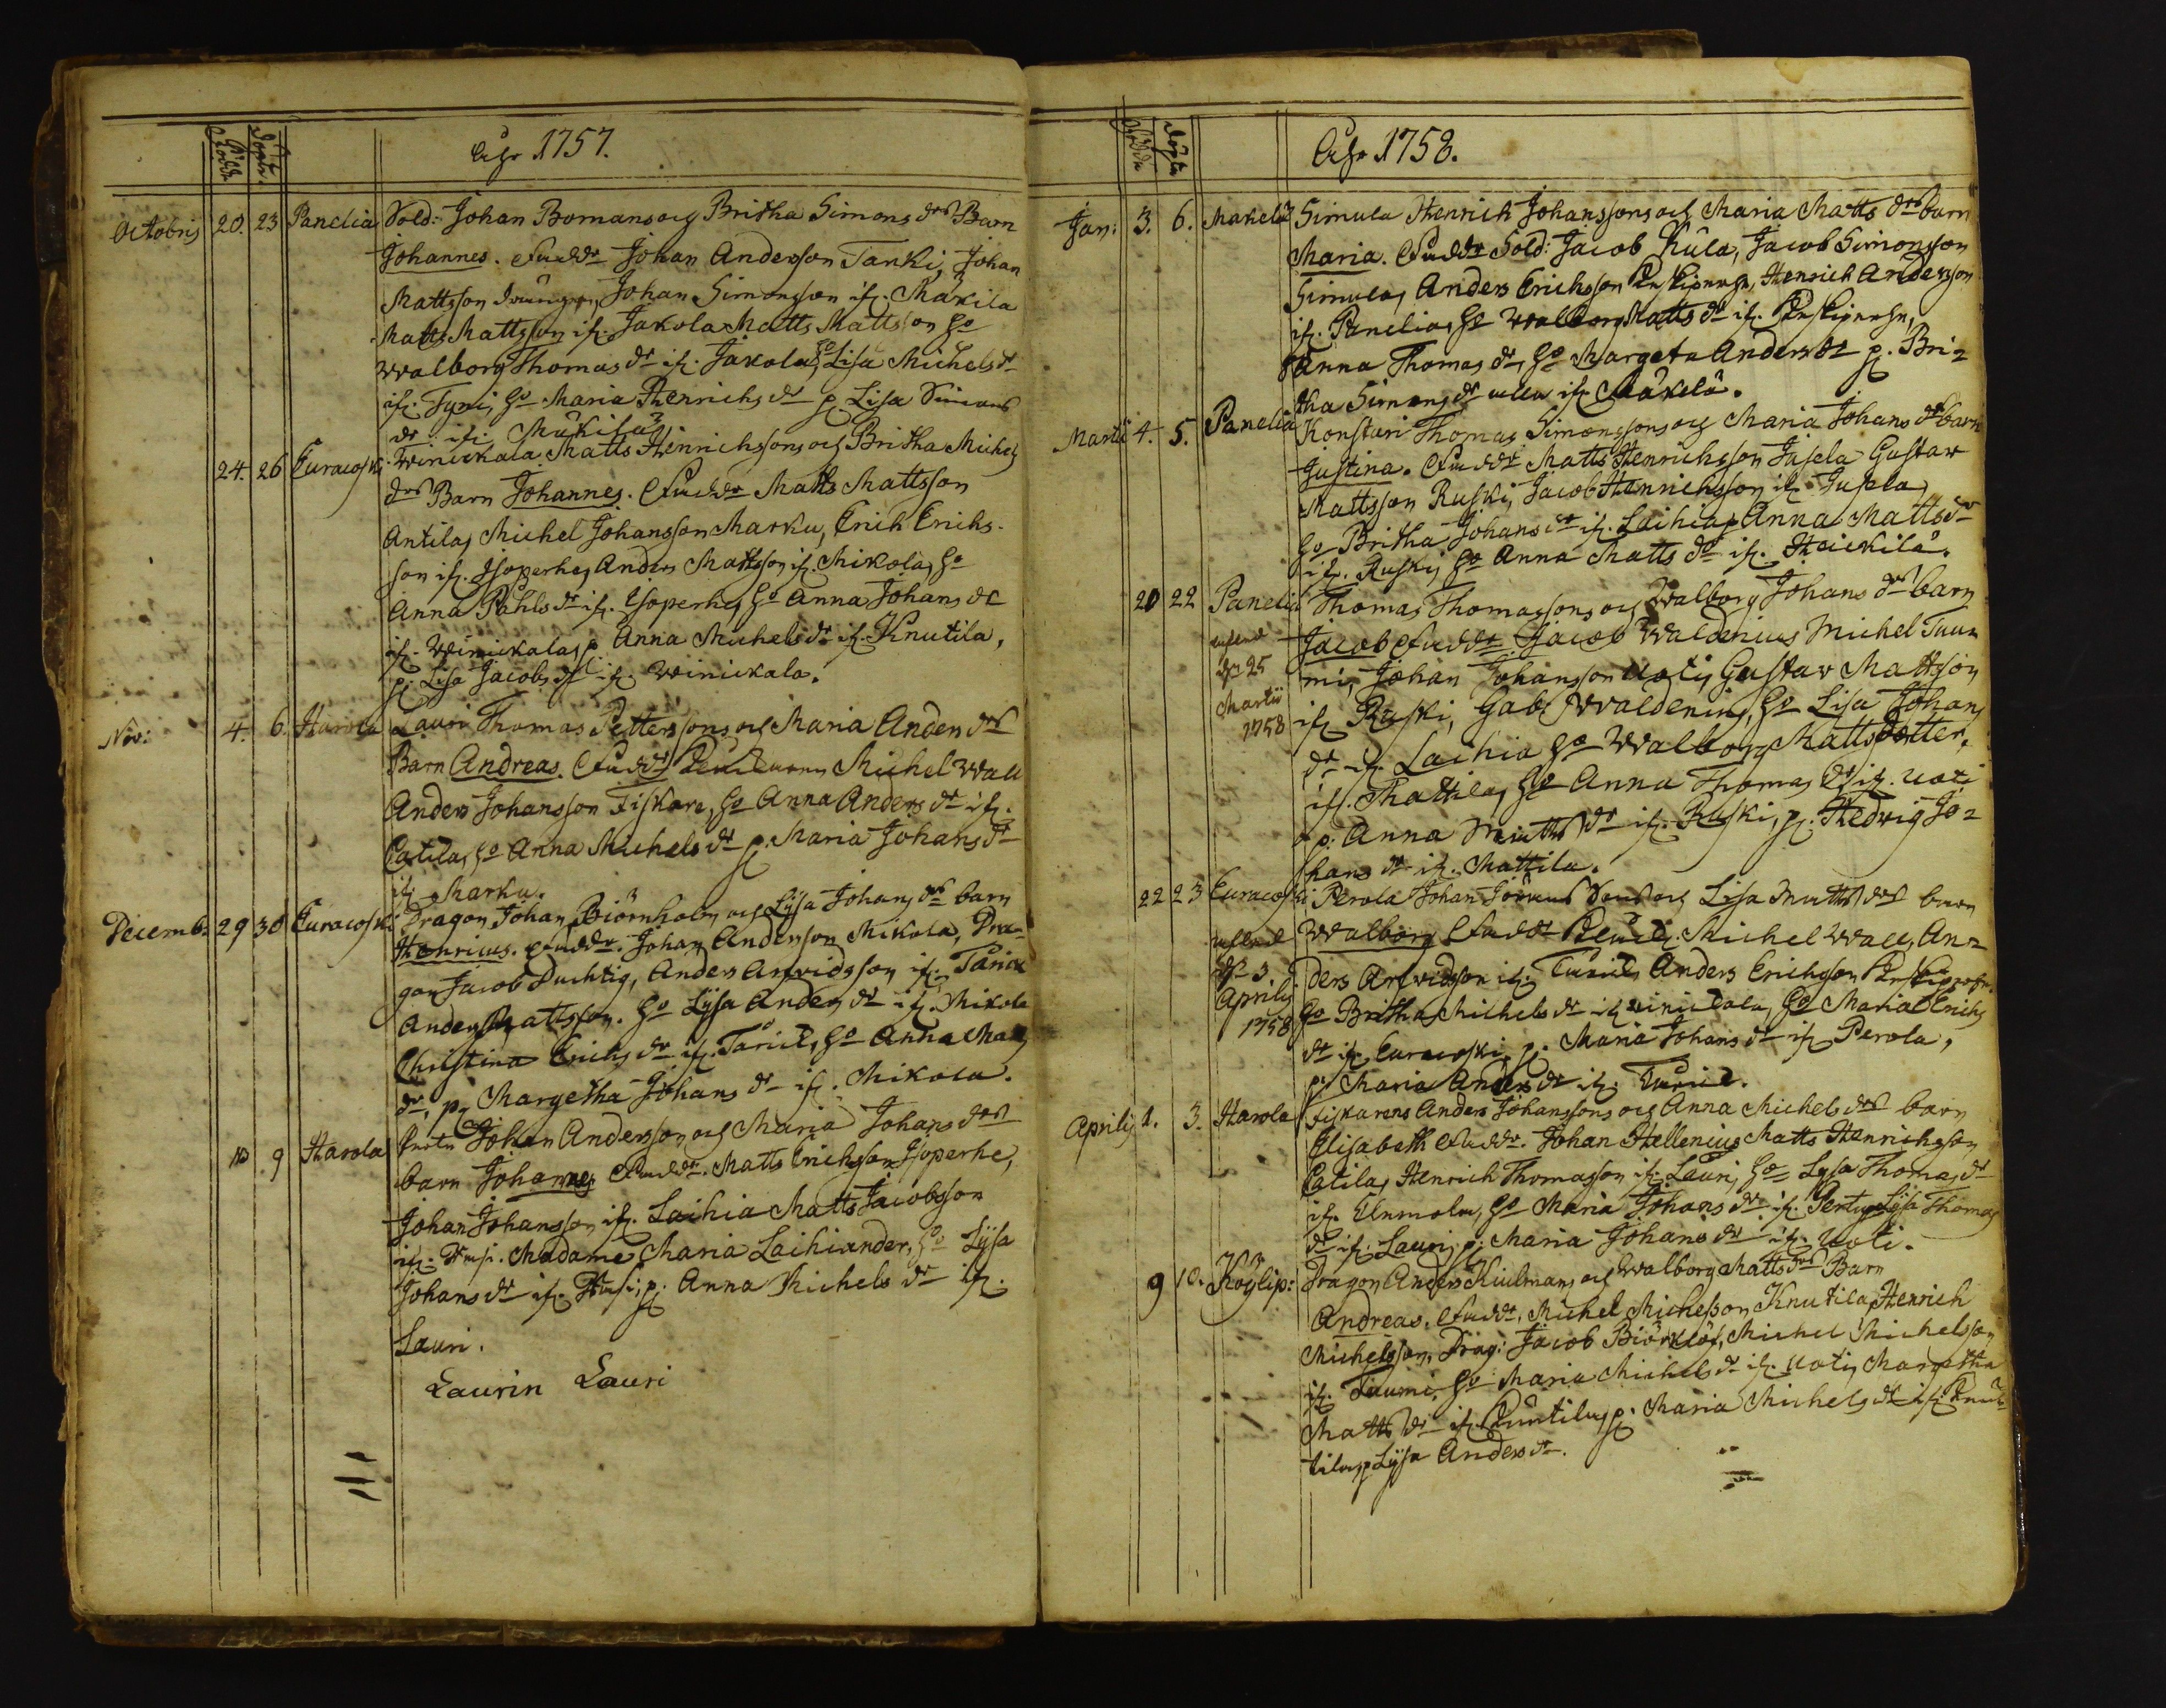 födde
Döpte
Åhr 1757.
Octobris 20. 23 Panelia Sold: Johan Bomans och Britha Simons dr Barn
Johannes. Faddr Johan Andersson Tanki, Johan
Mattsson Johan Simonsson if. Mäkilä
Matts Mattsson if. Jakola Matts Mattsson h:o
Walborg Thomas dr if. Jakola, h:o Lisa Michels dr
if. Tyni, h:o Maria Henrichs dr p. Lisa Simons
dr if. Mäkilä
24. 26 Euracoski Winickala Matts Hinrichssons och Britha Michels
drs Barn Johannes. Faddr Matts Mattsson
Antila, Michel Johansson Marku, Erich Erichs-
son if. Isoperhe, Anders Mattsson if. Mikola, h:o
Anna Påhls dr if. Isoperhe, h:o Anna Johans dr
if. Winickala, p. Anna Michels dr if. Knutila,
p. Lisa Jacobs dr if. Winickala.
Nov: 4. 6. Harola Lauri Thomas Petterssons och Maria Anders drs
Barn Andreas. Faddr Michel Wall
Anders Johansson Fiskare, h:o Anna Anders dr if.
Catila, h:o Anna Michels dr p. Maria Johans dr
if. Marku.
Decemb: 29 30 Euracoski Dragon Johan Biörnholm och Lijsa Johans drs barn
Henricus. Faddr. Johan Andersson Mikola, Dra-
gon Jacob Duchtig, Anders Arfvidsson if.
Anders Mattsson. h:o Lijsa Anders dr if. Mikola
Christina Erichs dr if. h:o Anna Matts
dr, p. Margetha Johans dr if. Mikola.
10 9 Harola Johan Andersson och Maria Johans drs
barn Johannes Faddr. Matts Erichsson Isoperhe,
Johan Johansson if. Laihia Matts Jacobsson
if. Madame Maria Laihiander, h:o Lijsa
Johans dr if. p. Anna Michels dr if.
Lauri.
Laurin Lauri
födde
Döpte
Åhr 1758.
Jan: 3. 6. Mäkelä Simula Henrich Johanssons och Maria Matts drs barn
Maria. Faddr Sold: Jacob Kula, Jacob Simonsson
Simula, Anders Erichsson Henrich Andersson
if. Panelia, h:o Walborg Matts dr if.
Anna Thomas dr, h:o Margeta Anders dr p. Bri=
tha Simons dr alla if. Mäkelä.
Martii 4. 5. Panelia Konsturi Thomas Simonssons och Maria Johans dr barn
Justina. Faddr Matts Henrichsson Jusela Gustav
Mattsson Ruski, Jacob Henrichsson if. Jusela,
h:o Britha Johans dr if. Laihia, Anna Matts dr
if. Ruski, h:o Anna Matts dr if. Heickilä.
20 22 Panelia Thomas Thomassons och Walborg Johans dr barn
Jacob Faddr Jacob Waldenius Michel Tuu=
d. 25
Martii
1758
mi, Johan Johansson Uoti, Gustav Mattsson
if. Ruski, Gab: Waldenius, h:o Lisa Johans
dr if. Laihia h:o Walborg Matts dotter,
if. Mattila, h:o Anna Thomas dr if. Uoti
p: Anna Matts dr if. Ruski, p. Hedvig Jo=
hans dr if. Mattila.
22 23 Euracoski Perola Johan och Lisa Matts drs barn
Walborg Faddr Michel Wall, An=
d. 3
Aprilis
1758
ders Arfvidsson if. Anders Erichsson
h:o Britha Michels dr if. Winickala, h:o Maria Erichs
dr if. Euracoski, p. Maria Johans dr if. Perola,
p: Maria Anders dr if.
Aprilis 1. 3. Harola Fiskarens Anders Johanssons och Anna Michels drs barn
Elisabeth Faddr. Johan Hellenius Matts Henrichsson
Catila, Henrich Thomasson if. Lauri, h:o Lysa Thomas dr
if. h:o Maria Johans dr if. Lysa Thomas
dr if. Lauri, p. Maria Johans dr if. Uoti.
9 10. Köylip: Dragon Anders Kiulmans och Walborg Matts drs Barn
Andreas. Faddr, Michel Michelsson Knutila, Henrich
Michelsson, Drag: Jacob Biörklöf, Michel Michelsson
if. Tuumi, h:o Maria Michels dr if. Uoti, Margetha
Matts dr if. p. Maria Michels dr if. Knu=
tila, p. Lijsa Anders dr.